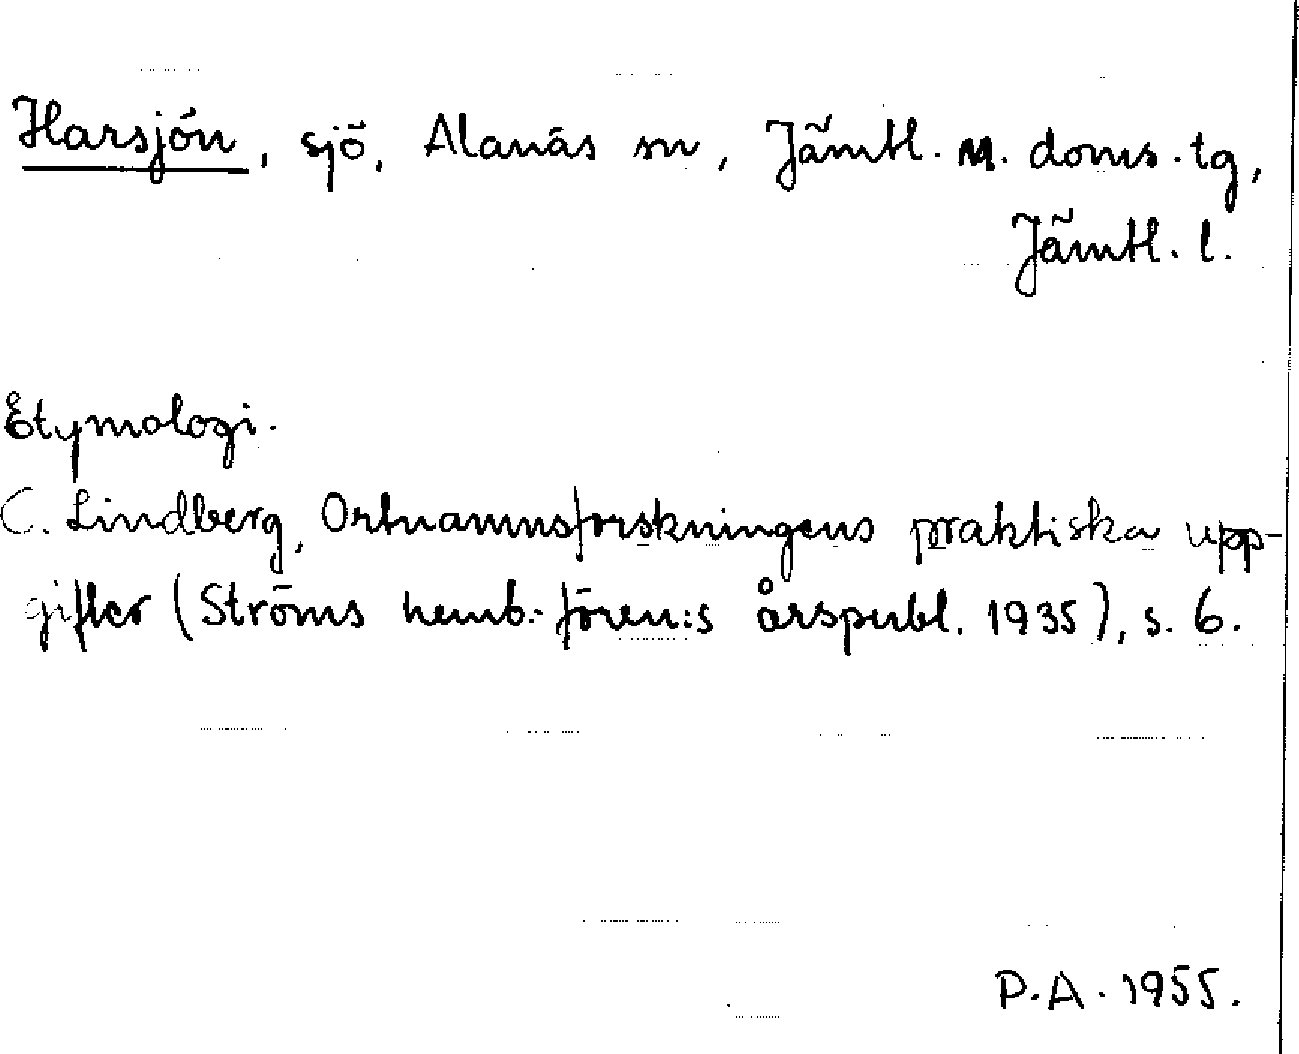 Harsjön, sjö, Alanäs sn, Jämtl. n. doms. tg,
Jämtl. l.
Etymologi.
C. Lindberg, Ortnamnsforskningens praktiska upp-
gifter (Ströms hemb.-fören:s årspubl. 1935), s. 6.
P.A. 1955.